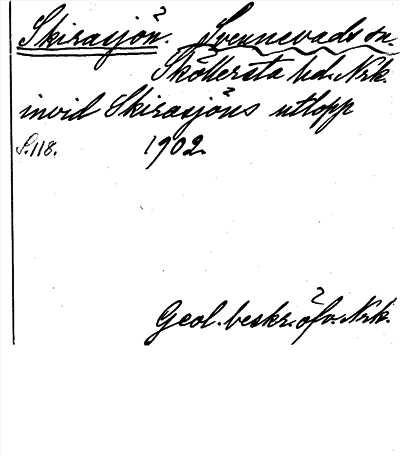 Skirasjön². Svennevads sn.
Sköllersta hd. Nrk.
invid Skirasjöns² utlopp
S. 118. 1902.
Geol. beskr. öfv.² Nrk.